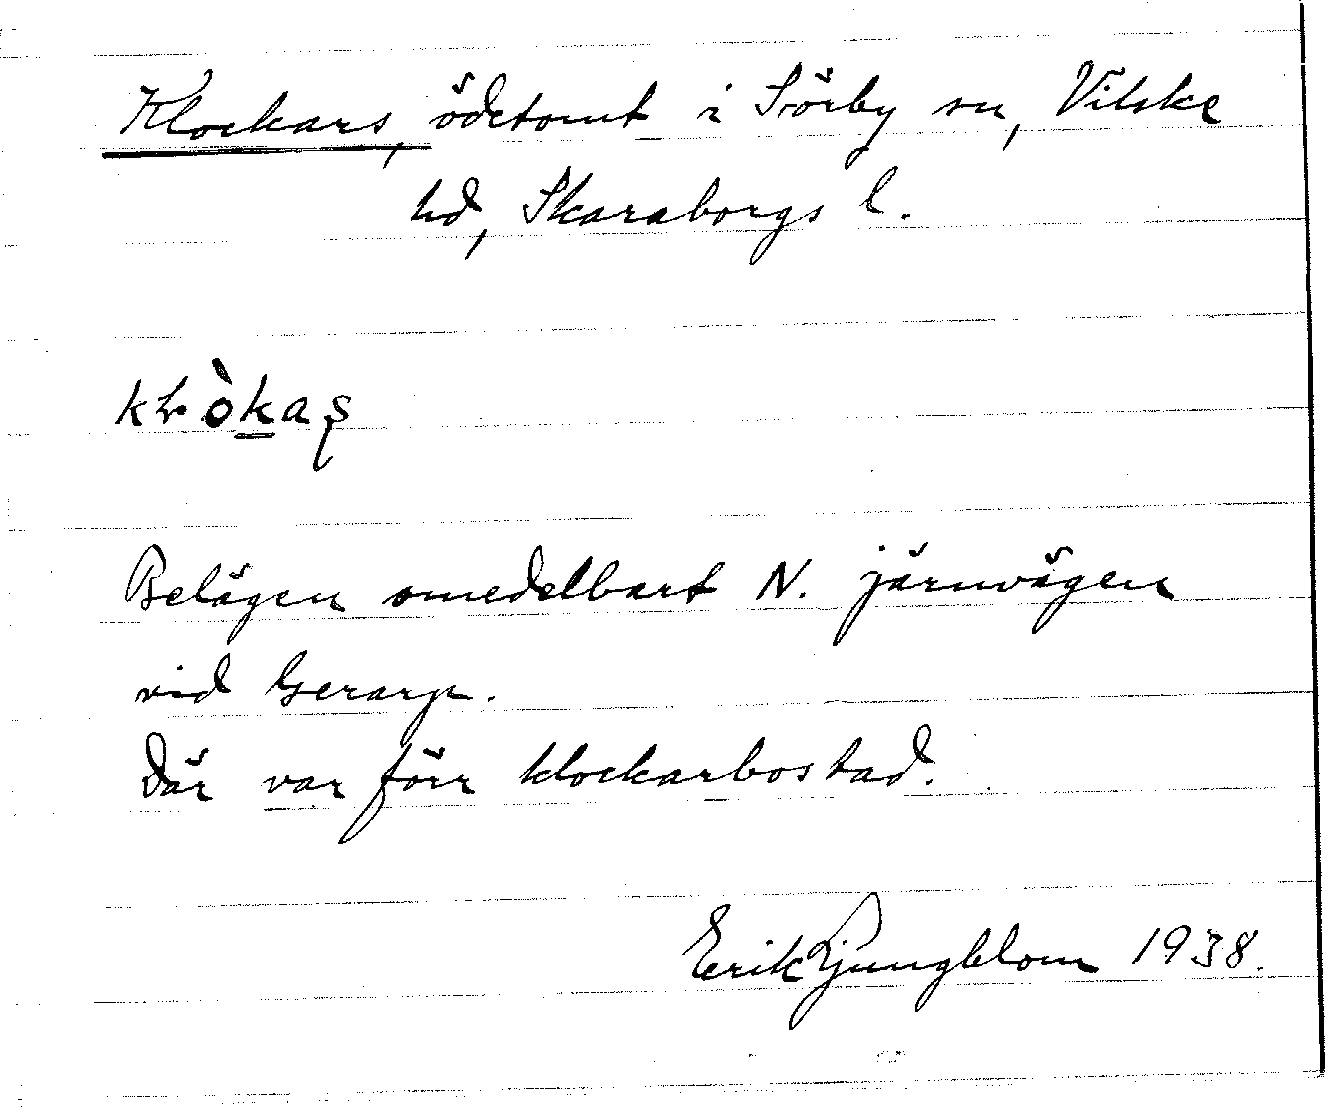 Klockars, ödetomt i Sörby sn, Vilske
hd, Skaraborgs l.
kłòkaʂ
Belägen omedelbart N. järnvägen
vid Gerarp.
Där var förr klockarbostad.
Erik Ljungblom 1938.